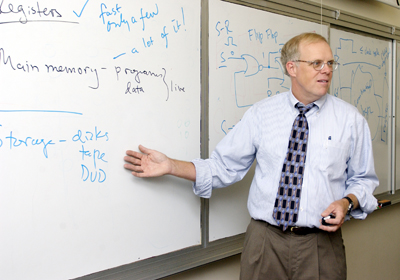 Registers ✓ fast
only a few
- a lot of it!
Main memory - programs
data } live
Storage - disks
tape
DVD
S-R Flip Flop
S